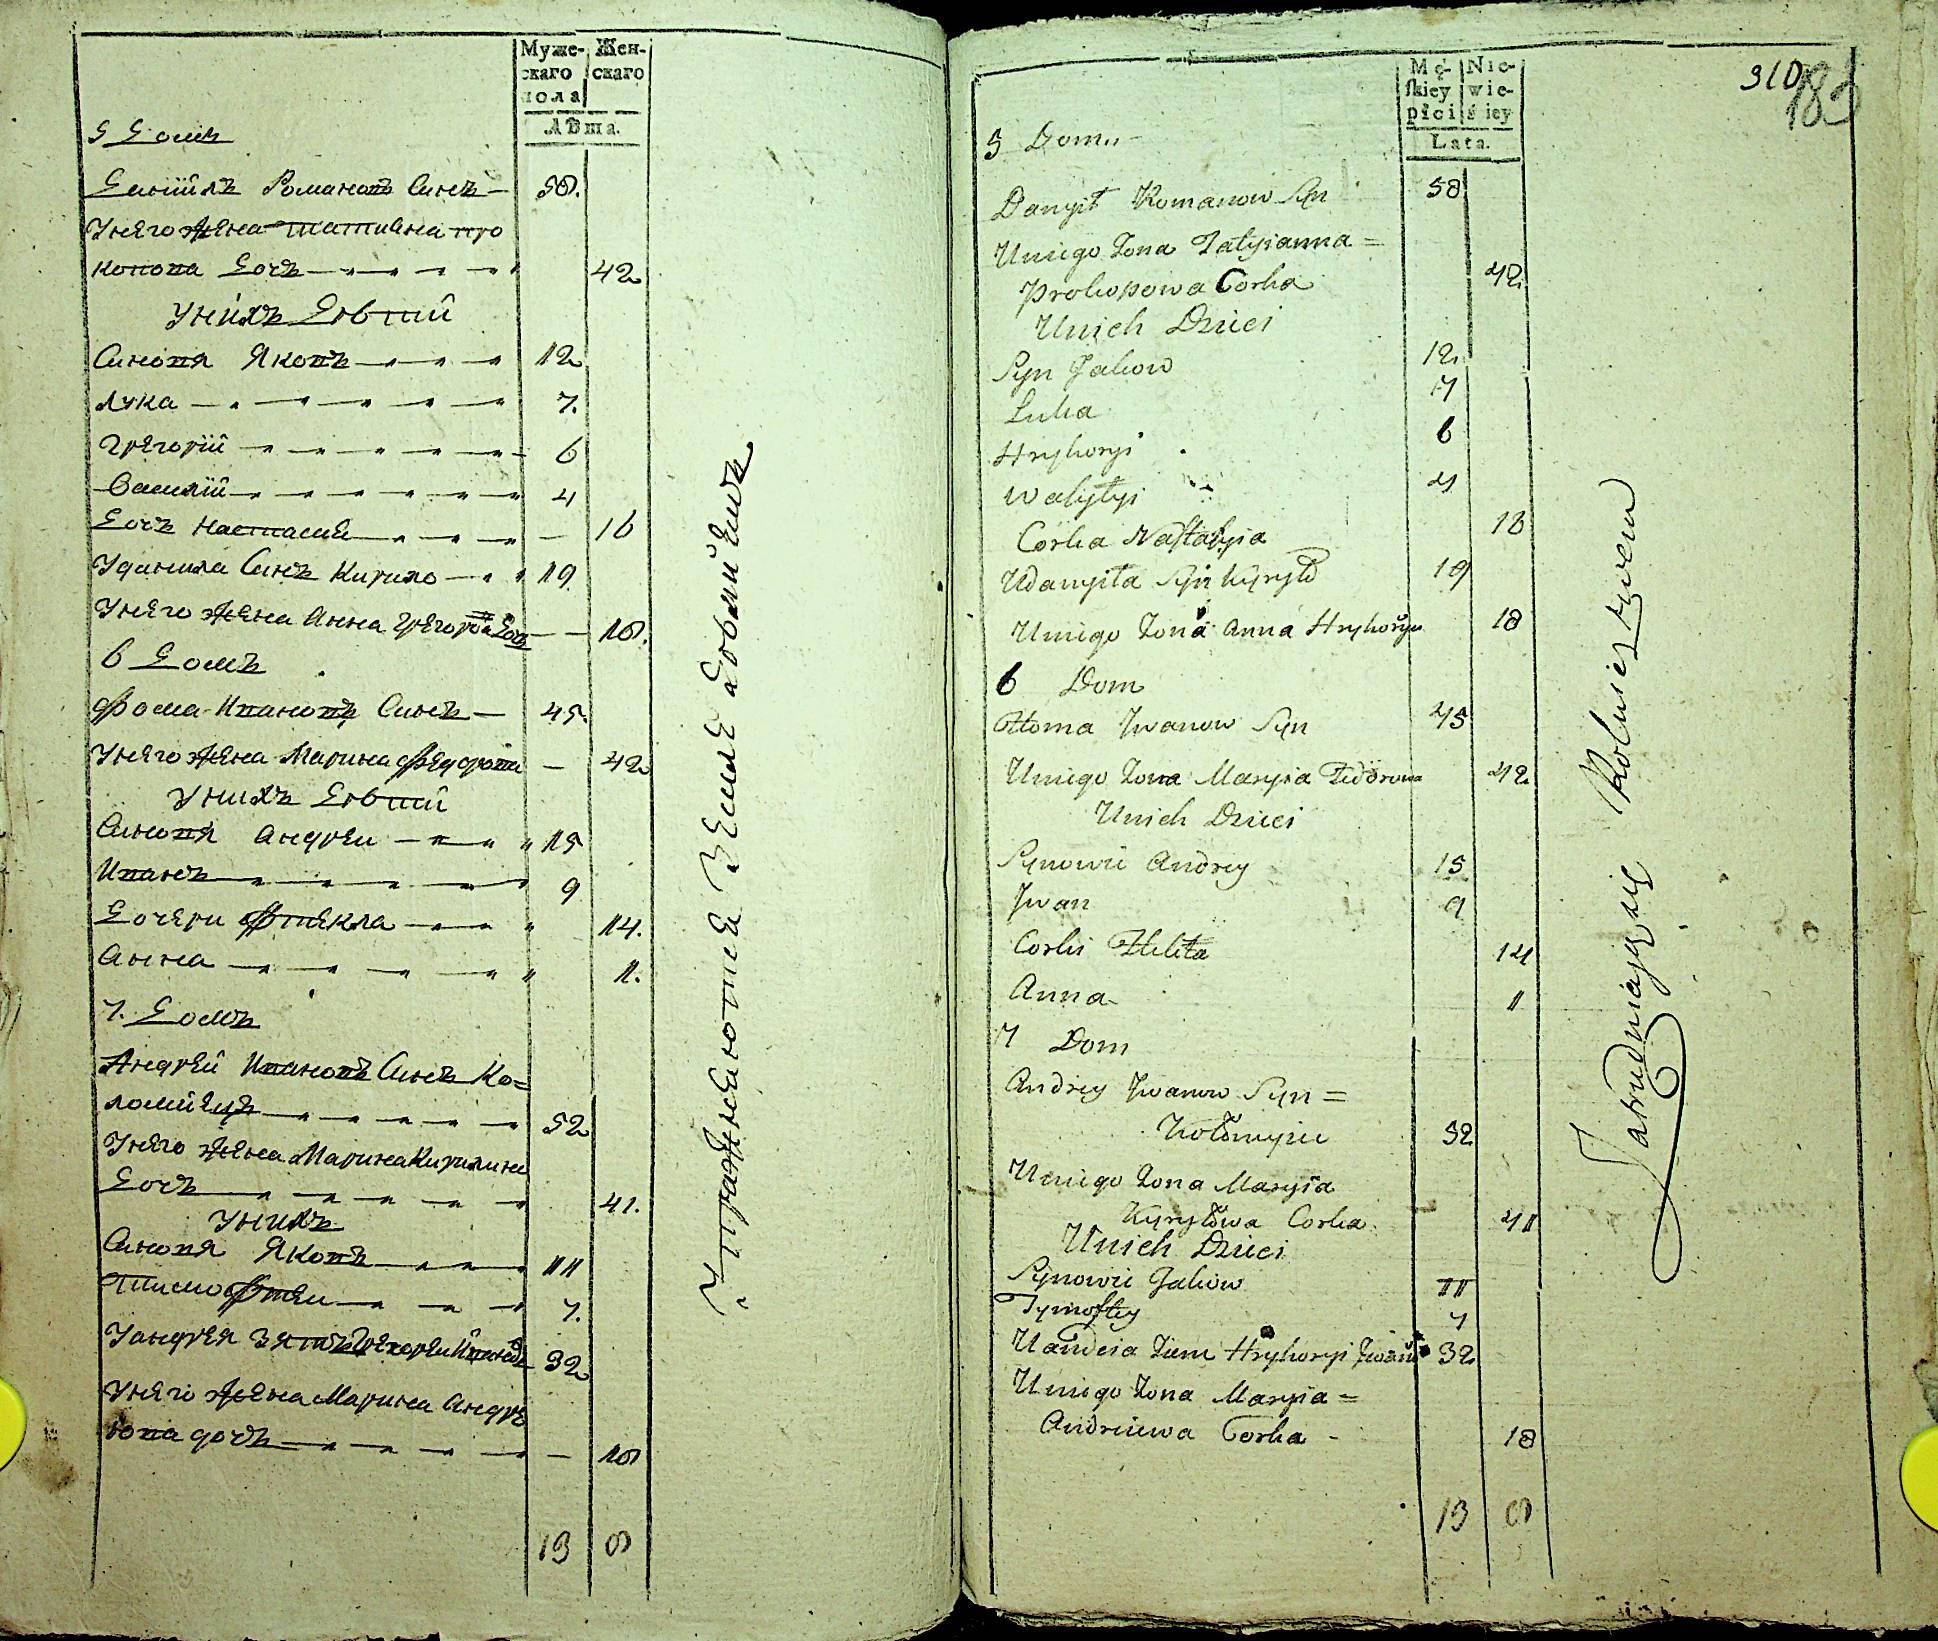 Муже-
скаго
пола
Жен-
скаго
Лѣта.
5 Домъ
Даніилъ Романовъ Синъ — 58.
Унего жена татиана про
копова дочъ 42
Унихъ дѣтий
Синовя Яковъ 12
лука 7.
григорій 6
Василій 4
дочъ настасия — 16
Уданила Синъ Кирило 19
Унего жена Анна григорова дочъ — 18.
6 домъ
Фома Ивановъ Синъ — 45.
Унего жена Марина федорова — 42
Унихъ дѣтий
Синовя андреи 15
Иванъ 9
дочери фтекла 14.
анна 11.
7. домъ
Андрей Ивановъ Синъ Ко=
ломиецъ 52
Унего жена Марина Кирилина
дочъ 41.
Унихъ
Синовя Яковъ 11
тимофтеи 7.
Уандрея зять грегореи 32
Унего жена Марина андре
ева дочъ — 18
13 8
Упражняются земледѣлиемъ
310
183
Mę-
skiey
płci
Nie-
wie-
ściey
Lata.
5 Dom
Danyił Romanow Syn 58
Uniego Zona Tatyianna =
Prokopowa Corka 42
Unich Dzieci
Syn Jakow 12
Luka 7
Hryhoryi 6
Wasylyi 4
Corka Nastasyia 16
Udanyiła Syn Kyryło 19
Uniego Zona Anna Hryhoryu 18
6 Dom
Homa Jwanow Syn 45
Uniego Zona Maryia Fedorowa 42
Unich Dzieci
Synowie Andrey 15
Jwan 9
Corki Thekla 14
Anna 11
7 Dom
Andrey Jwanow Syn =
Kołomyiec 52
Uniego Zona Maryia
Kyryłowa Corka 41
Unich Dzieci
Synowie Jakow 11
Tymoftey 7
Uandreia Ziem Hryhoryi Jwanu 32
Uniego Zona Maryia =
Andreiewa Corka - 18
13 8
Zatrudniaią się Rolnictwem